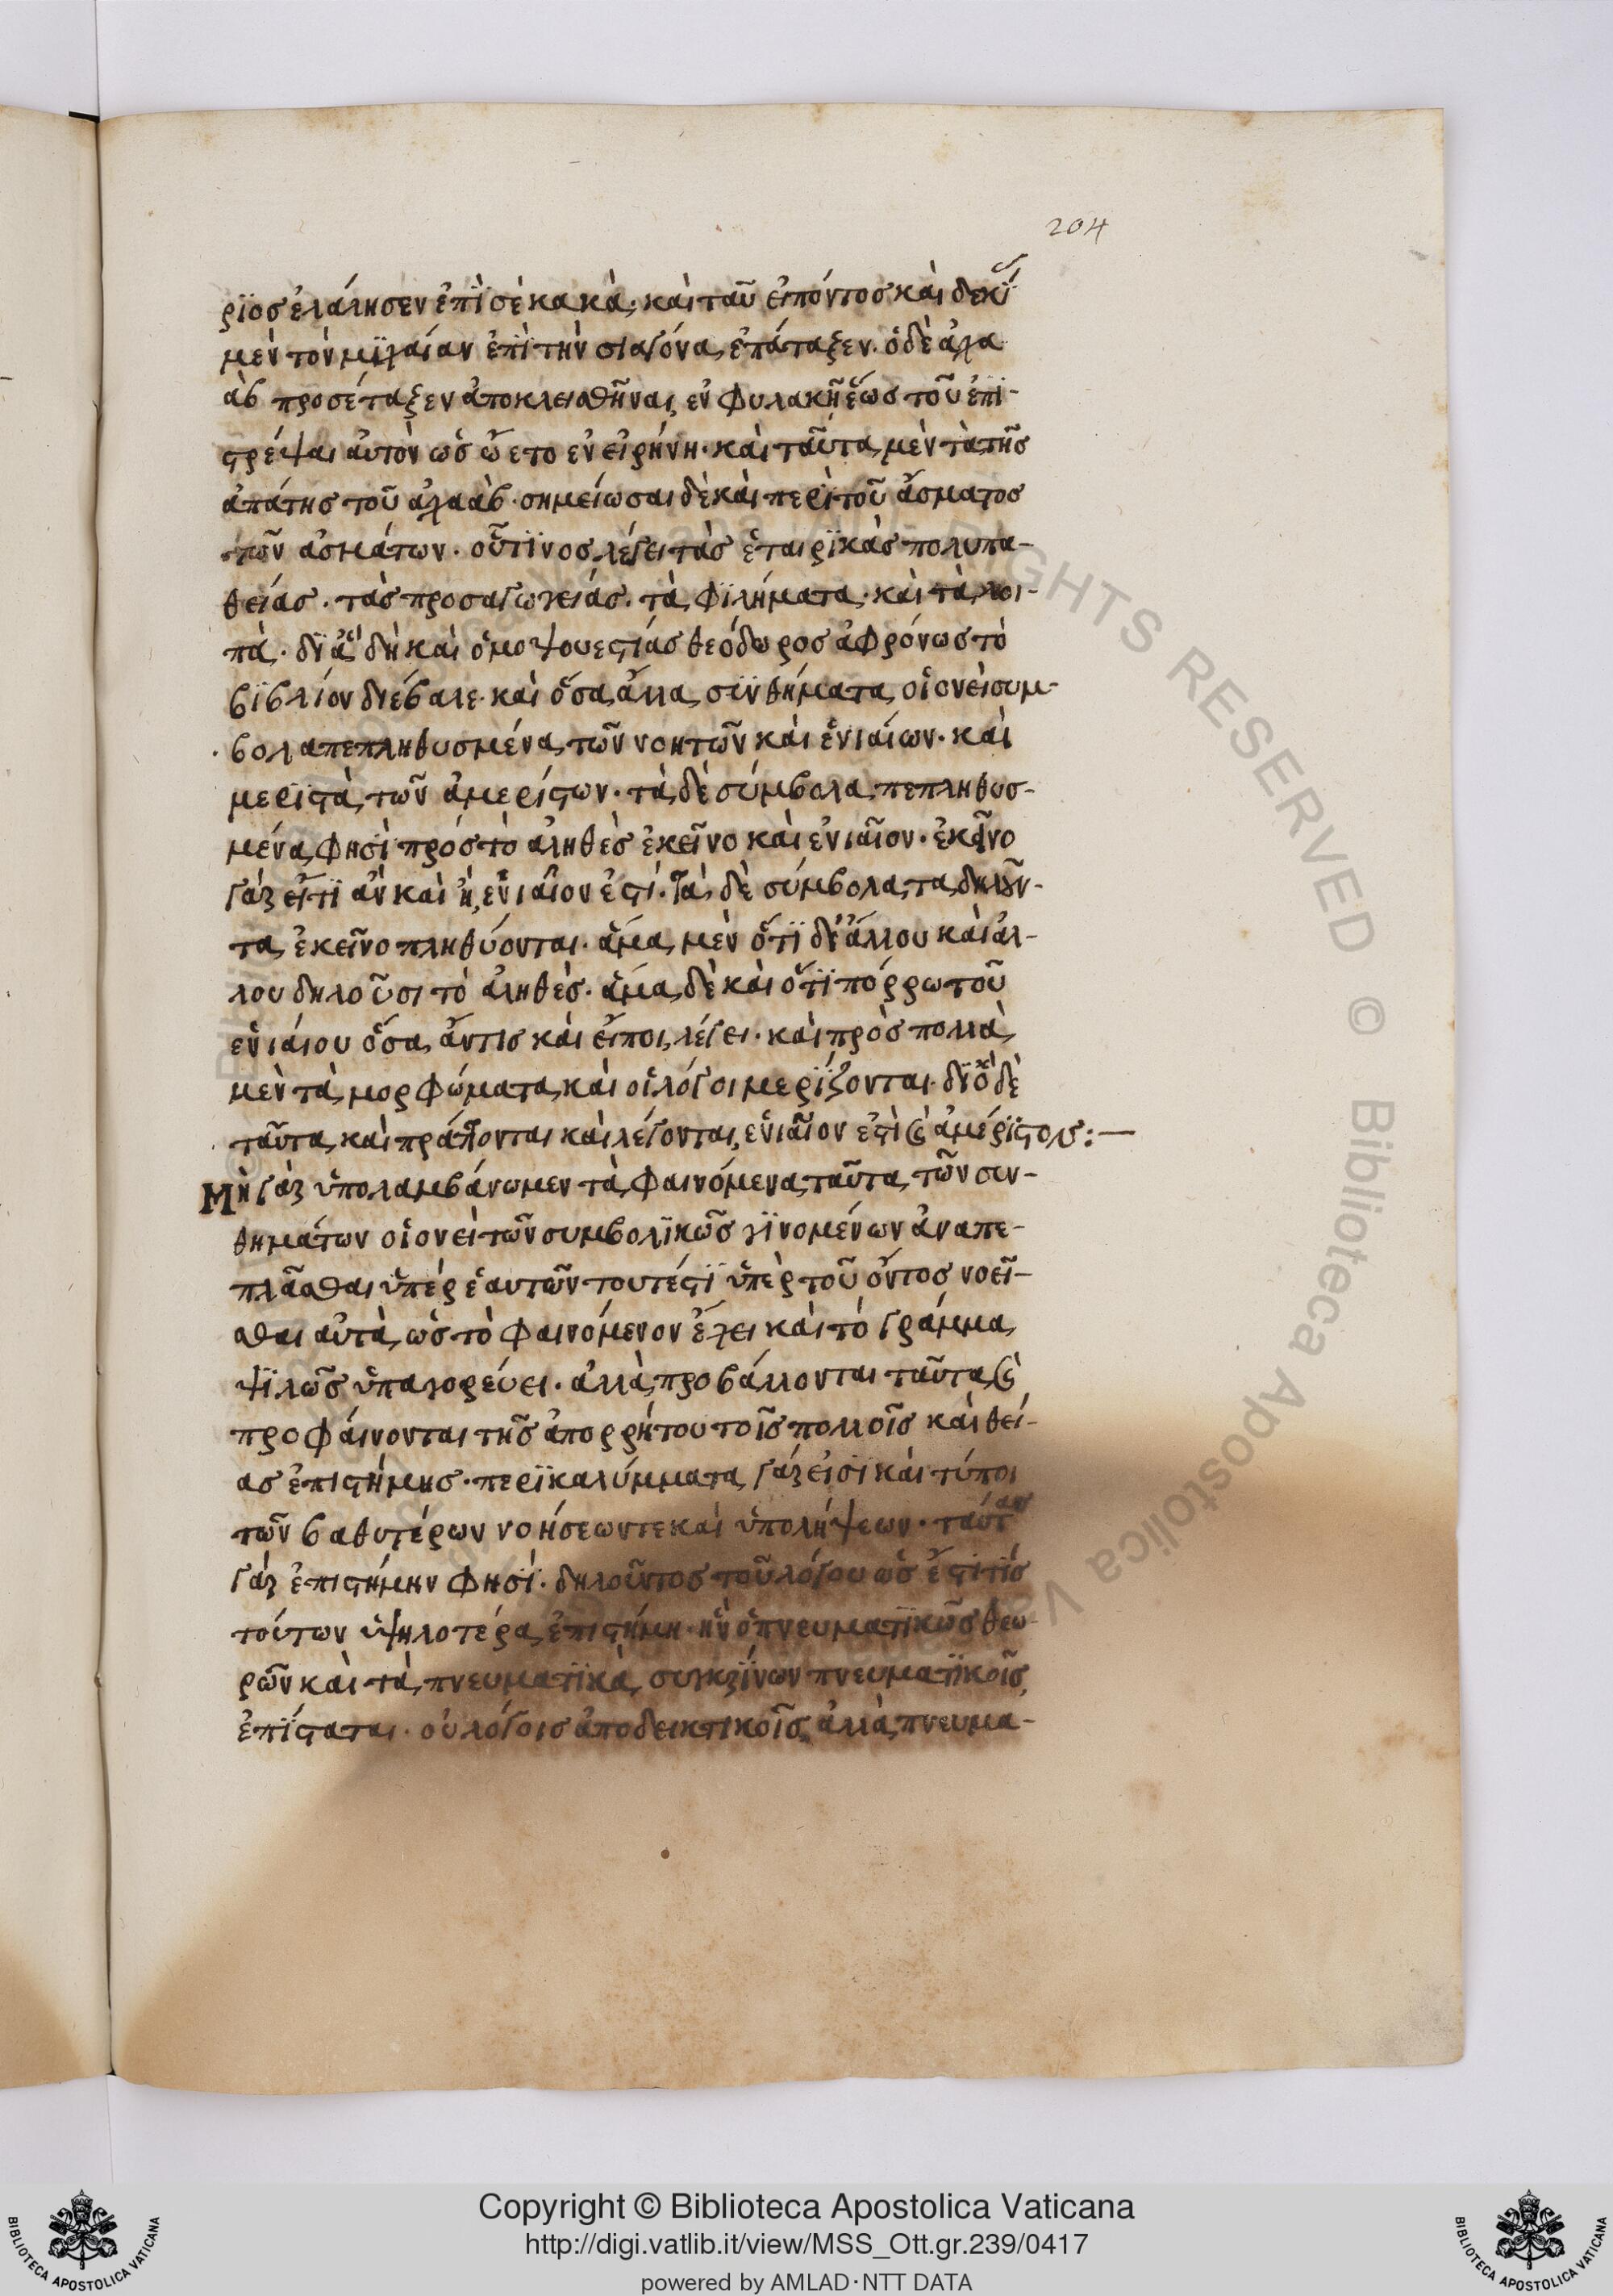 204
ρϊοσ ἐλάλησεν ἐπῒ σὲ κακὰ· καὶ ταῦ εἰπόντοσ καὶ δεκϊ
μὲν τὸν μϊχαίαν ἐπῒ τὴν σιαγόνα ἐπάταξεν. ὁ δὲ ἀχα
ὰβ προσέταξεν ἀποκλεισθῆναι ἐν φυλακῆ ἕως τοῦ ἐπϊ-
στρέψαι ἀυτὸν ὡς ὤετο ἐν εἰρήνη· καὶ ταῦτα μὲν τὰ τῆσ
ἀπάτησ τοῦ ἀχαὰβ· σημείωσαι δὲ καὶ περὶ τοῦ ἄσματοσ
τῶν ἀσμάτων· οὗτϊνοσ λέγει τὰσ ἑταιρϊκὰσ πολυπα-
θείάσ· τὰσ προσαγωγειάσ· τὰ φϊλήματα· καὶ τὰ λοι-
πὰ· δϊ ἃ δὴ καὶ ὁ μοψουεστίασ θεόδωροσ ἀφρόνωσ τὸ
βϊβλίον διέβαλε· καὶ ὅσα ἄλλα σϋνθήματα οἱονεὶ συμ-
βολα πεπληθυσμένα τῶν νοητῶν καὶ ἑνιαίων· καὶ
μερϊστὰ τῶν ἀμερίστων· τὰ δὲ σύμβολα πεπληθυσ-
μένα φησὶ πρὸσ τὸ ἀληθὲσ ἐκεῖνο καὶ ἑνιαῖον· ἐκεῖνο
γὰρ εἴτϊ ἂν καὶ ἠ ἑνιαῖον ἐστί. Τὰ δὲ σύμβολα τα δηλοῦν-
τα ἐκεῖνο πληθύονται· ἅμα μὲν ὅτϊ δἰ ἄλλου καὶ ἀλ-
λου δηλοῦσι τὸ ἀληθὲσ· ἅμα δὲ καὶ ὅτϊ πόρρω τοῦ
ἑνιάιου ὅσα ἄν τισ καὶ εἴποι λέγει· καὶ πρὸσ πολλὰ
μὲν τὰ μορφώματα καὶ οἱ λόγοι μερϊζονται· δϊ ὃ δὲ
ταῦτα καὶ πράττονται καὶ λέγονται ἑνιαῖον ἐστὶ καὶ ἀμέρϊστον:—
Μὴ γὰρ ὑπολαμβάνωμεν τὰ φαινόμενα ταῦτα τῶν συν-
θημάτων οἱονεὶ τῶν συμβολϊκῶσ γϊνομένων ἀναπε-
πλᾶσθαι ὑπὲρ ἑαυτῶν τουτέστϊ ὑπὲρ τοῦ ὄντοσ νοεῖ-
σθαι αὐτὰ ὡσ τὸ φαινόμενον ἔχει καὶ τὸ γράμμα
ψϊλῶσ ὑπαγορέυει· ἀλλὰ προβάλλονται ταῦτα καὶ
προφάινονται τῆσ ἀπορρήτου τοῖσ πολλοῖσ καὶ θεί-
ασ ἐπιστήμησ· περϊκαλύμματα γάρ εἰσϊ καὶ τύποι
τῶν βαθυτέρων νοήσεων τε καὶ ὑπολήψεων· ταύτην
γὰρ ἐπιστήμην φησί· δηλοῦντοσ τοῦ λόγου ὡσ ἔστι τὶσ
τούτων ὑψηλοτέρα ἐπιστήμη· ἣν ὁ πνευματϊκῶσ θεω-
ρῶν καὶ τὰ πνευματϊκὰ συγκρϊνων πνευματϊκοῖσ
ἐπϊσταται· οὐ λόγοισ ἀποδεικτικοῖσ ἀλλὰ πνευμα-
Copyright © Biblioteca Apostolica Vaticana
http://digi.vatlib.it/view/MSS_Ott.gr.239/0417
powered by AMLAD·NTT DATA
BIBLIOTECA APOSTOLICA VATICANA
BIBLIOTECA APOSTOLICA VATICANA